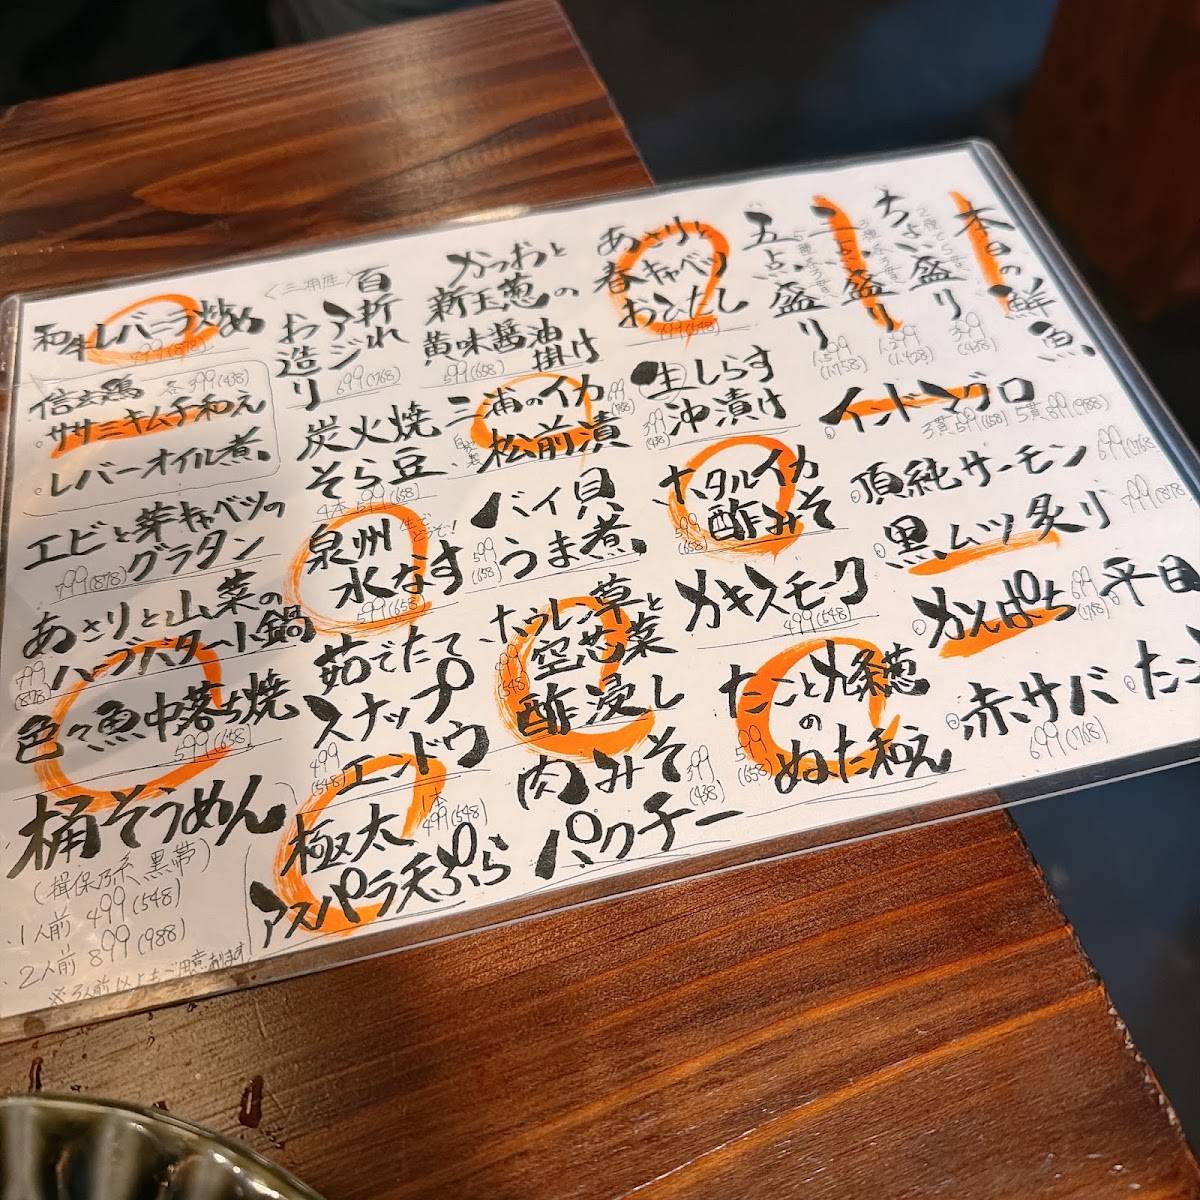 本日の鮮魚
ちょい盛り
399
(438)
三点盛り
1,299
(1,428)
五点盛り
1,599
(1,758)
インドマグロ
3貫 599(658) 5貫 899(988)
頂純サーモン
699(768)
黒ムツ炙り
799(878)
かんぱち
699
(768)
平目
赤サバ
699(768)
たこ
あさりと
春キャベツ
おひたし
499(548)
生しらす
沖漬け
399
(438)
ホタルイカ
酢みそ
599
(658)
カキスモーク
499(548)
たこと九条葱
の
ぬた和え
599
(658)
かつおと
新玉葱の
黄味醤油
掛け
599(658)
三浦のイカ
松前漬
699
(768)
バイ貝
うま煮
599
(658)
ホウレン草と
空芯菜
酢浸し
499
(548)
肉みそ
パクチー
399
(438)
〈三浦産〉
百折れ
アジ
お造り
699(768)
炭火焼
そら豆
4本 599(658)
泉州
水なす
生でどうぞ!
599(658)
茹でたて
スナップ
エンドウ
499
(548)
極太
アスパラ天ぷら
1本
499(548)
和牛レバニラ炒め
799(878)
信玄鶏
各399(438)
・ササミキムチ和え
・レバーオイル煮
エビと芽キャベツの
グラタン
799(878)
あさりと山菜の
ハーブバター小鍋
799
(878)
色々魚中落ち焼
599(658)
桶そうめん
(揖保乃糸 黒帯)
・1人前 499(548)
・2人前 899(988)
※3人前以上もご用意あります